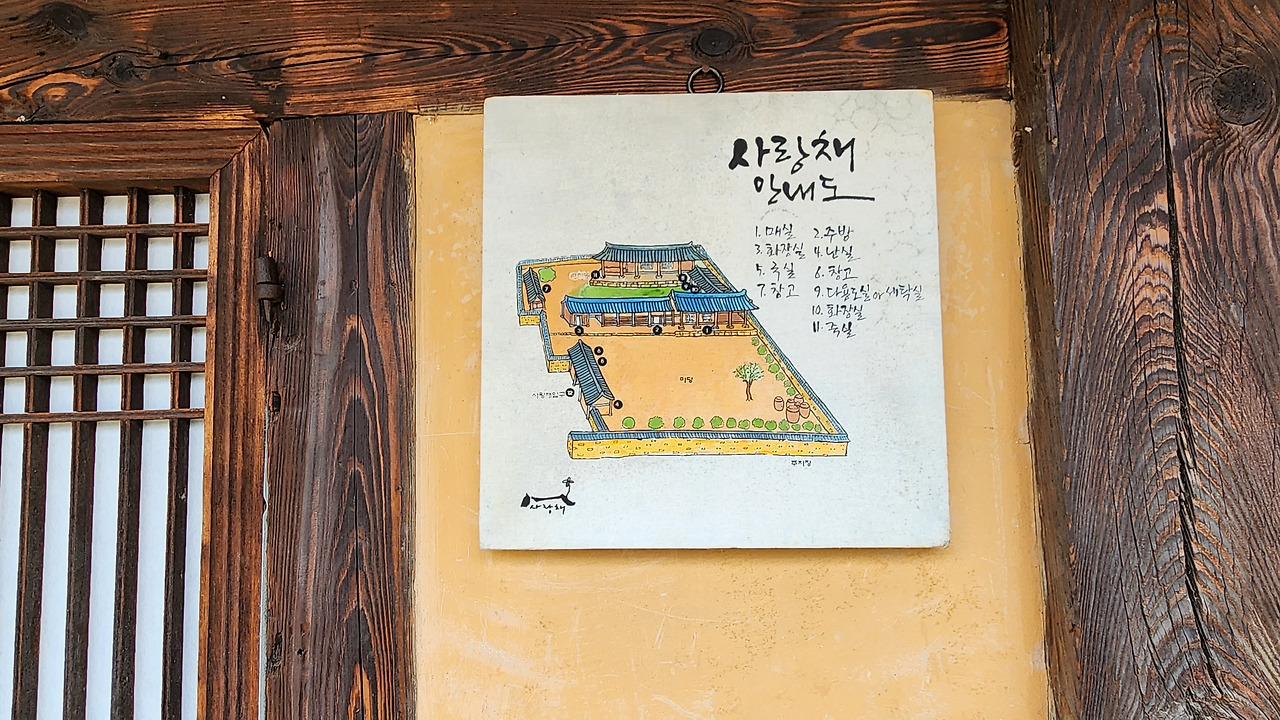 사랑채
안내도
1. 매실 2. 주방
3. 화장실 4. 난실
5. 국실 6. 창고
7. 창고 9. 다용도실 아 세탁실
10. 화장실
11. 죽실
마당
사랑채입구
주차장
사랑채